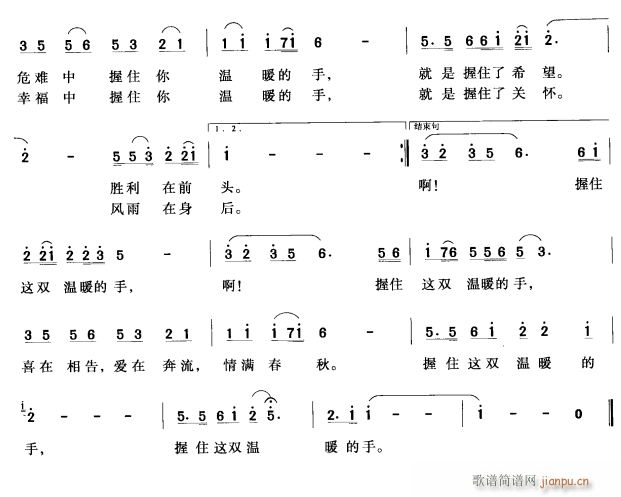 3 5 5 6 5 3 2 1 1 1 1 7 1 6 - - 5. 5 6 6 1 2 1 2.
危难中 握住你 温 暖的手, 就是握住了希望。
幸福中 握住你 温 暖的手, 就是握住了关怀。
1. 2. 结束句
2 - 5 5 3 2 2 1 1 - - - 3 2 3 5 6. 6 1
胜利 在前 头。 啊! 握住
风雨 在身 后。
2 2 1 2 2 3 5 - 3 2 3 5 6. 5 6 1 7 6 5 5 6 5 3.
这双 温暖的 手, 啊! 握住 这双 温暖的手,
3 5 5 6 5 3 2 1 1 1 1 7 1 6 - 5. 5 6 1 2 2 1
喜在 相告, 爱在 奔流, 情满 春 秋。 握 住这双 温 暖 的
1 2 - - - 5. 5 6 1 2 5. 2. 1 1 - - 1 - - 0
手, 握 住这双 温 暖 的手。
歌谱简谱网
jianpu.cn